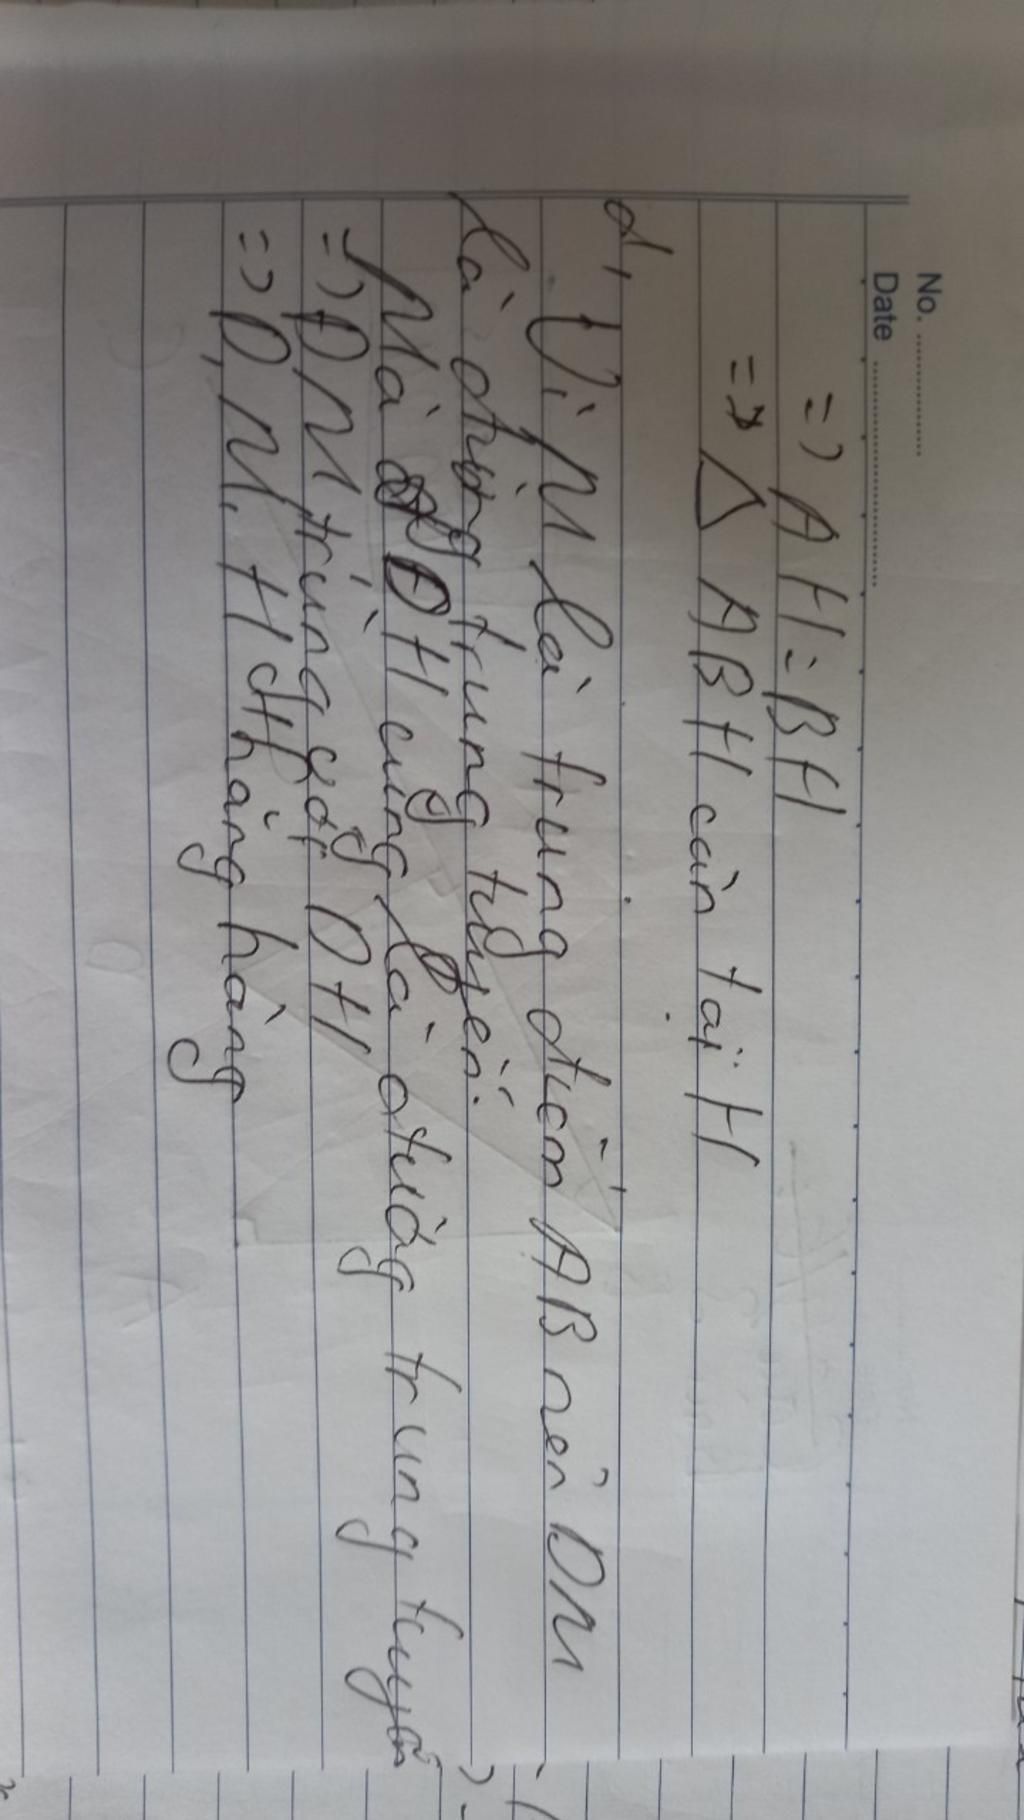 No. ............
Date ............
=> AH = BH
=> △ ABH cân tại H
d, Vì M là trung điểm AB nên DM
là đường trung tuyến.
Mà DH cũng là đường trung tuyến
=> DM trùng với DH
=> D, M, H thẳng hàng